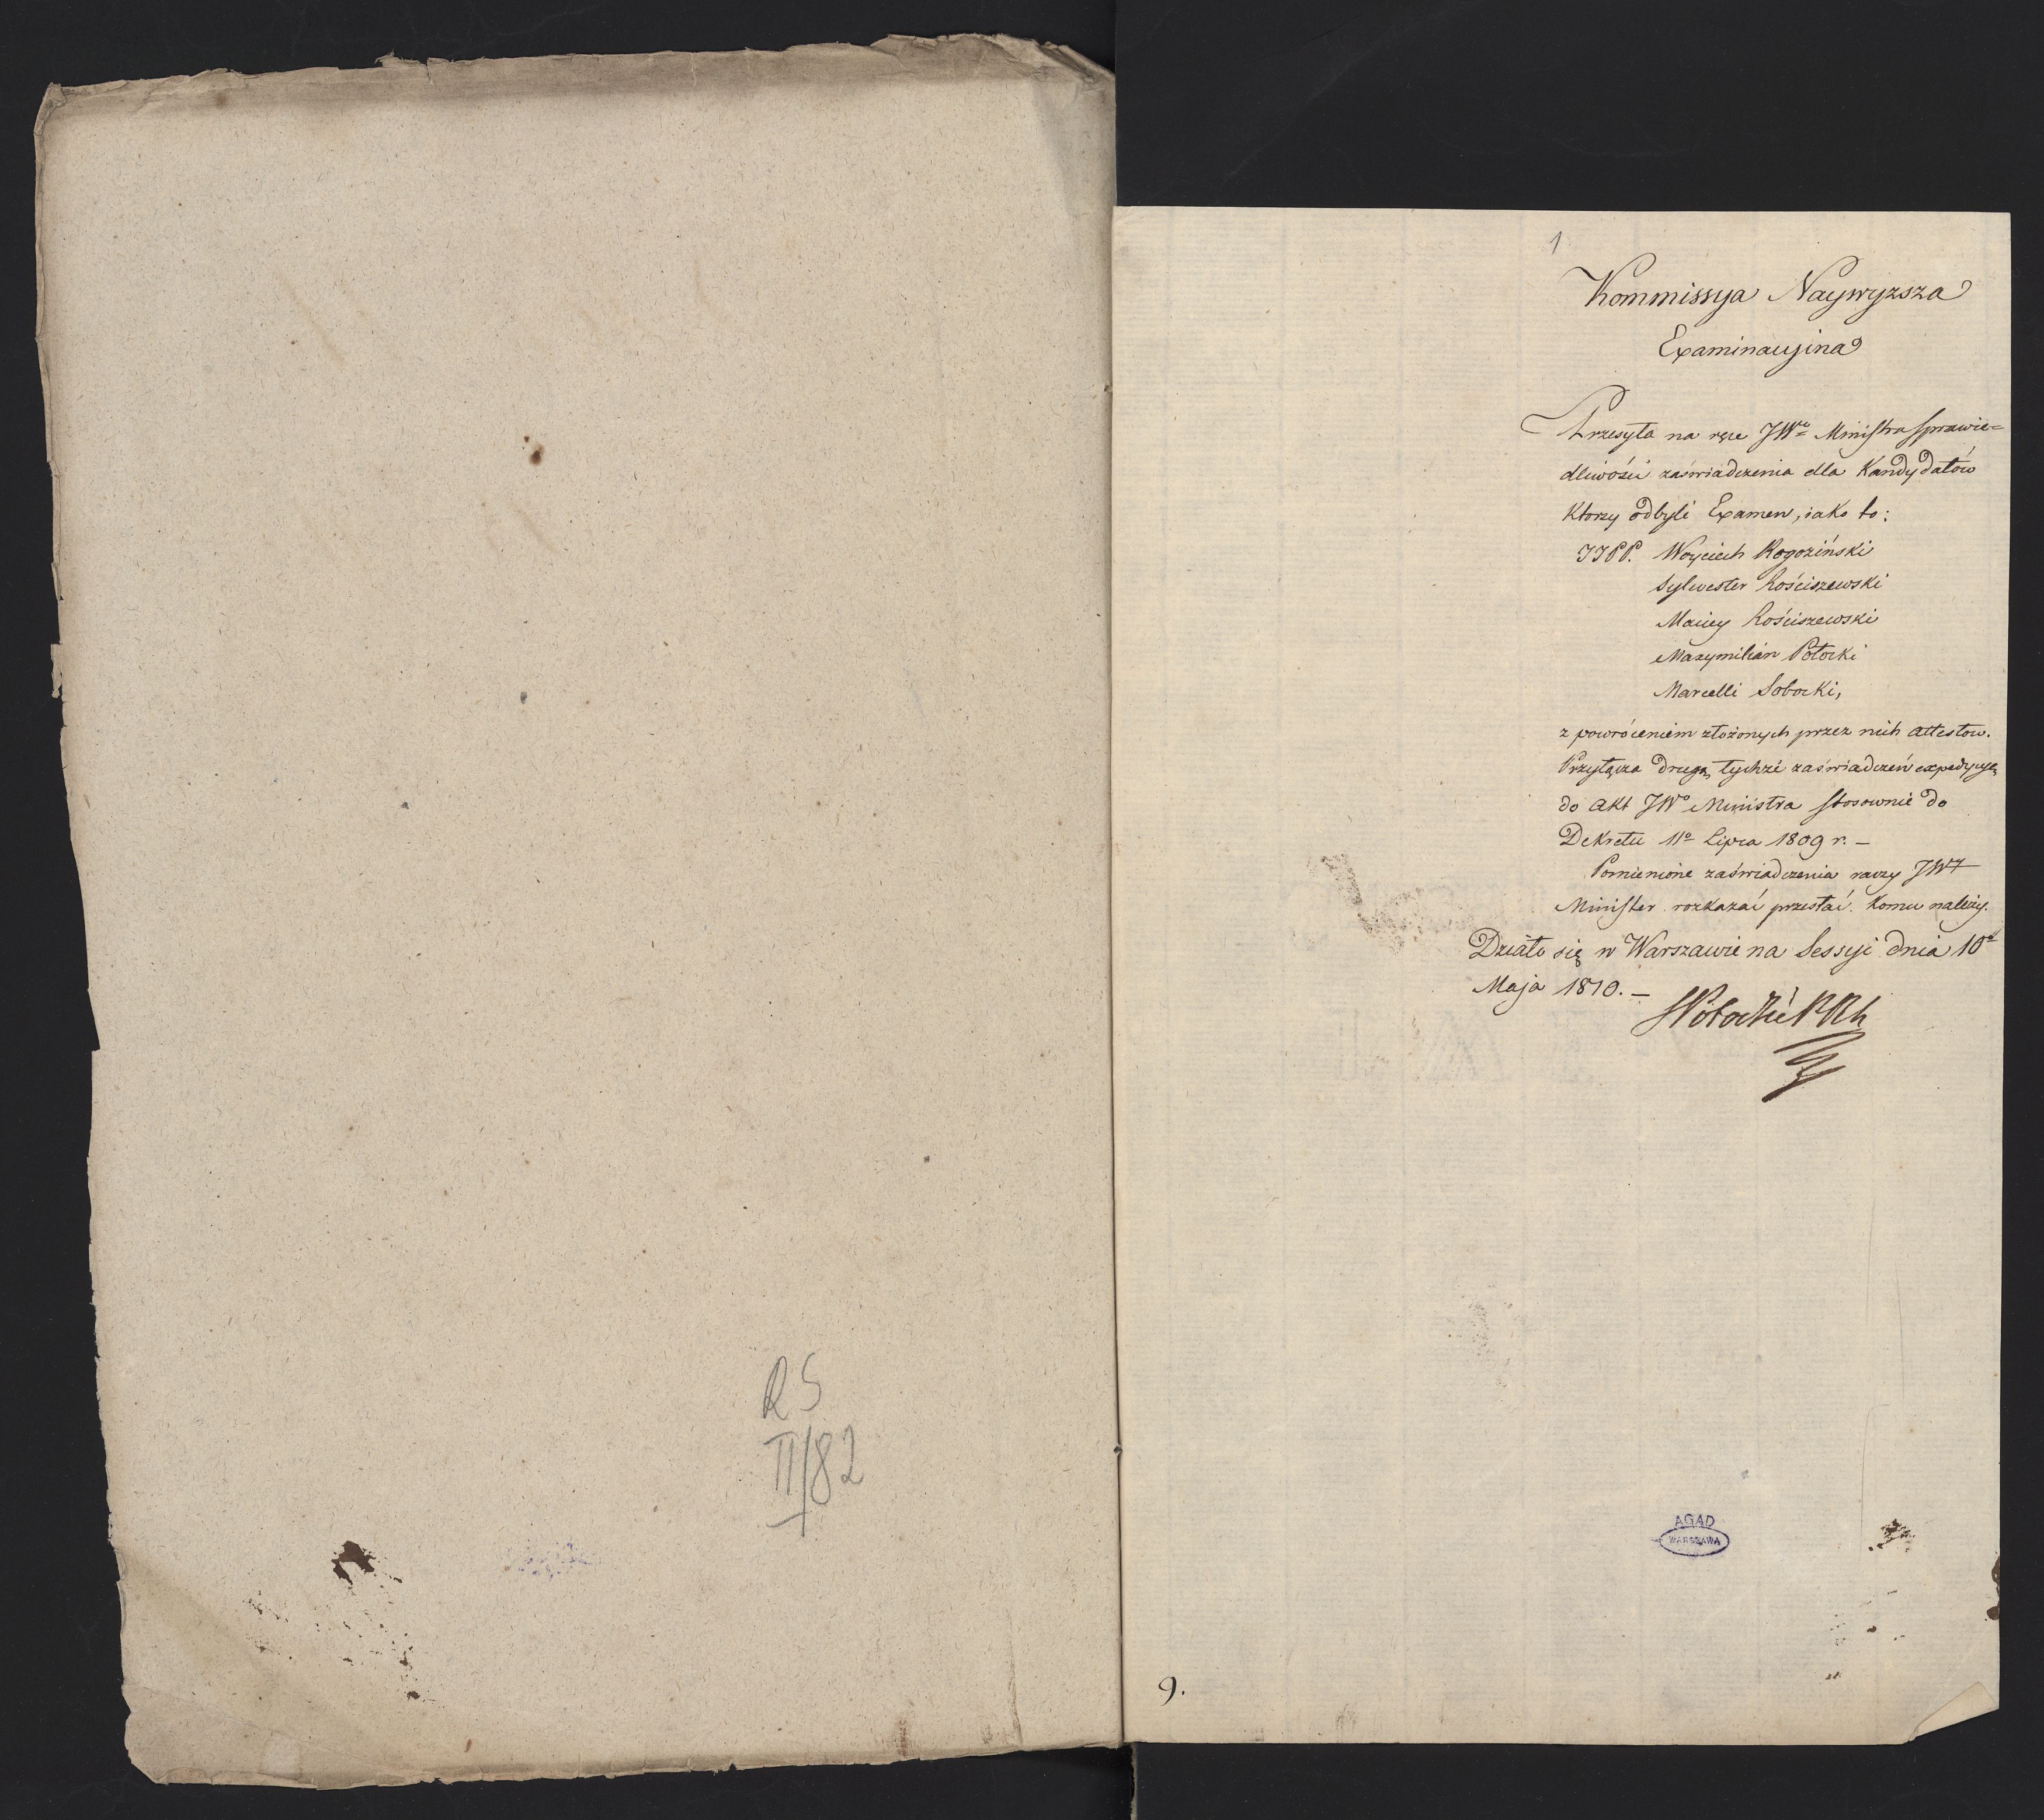 R S
II/82
1
Kommissya Naywyzsza
Examinacyina
Przesyła na ręce JWº Ministra Sprawie=
dliwości zaświadczenia dla Kandydatów
Ktorzy odbyli Examen, iako to:
JJPP. Woyciech Rogoziński
Sylwester Rościszewski
Maciey Rościszewski
Maxymilian Potocki
Marcelli Sobocki,
z powróceniem złożonych przez nich attestow.
Przyłącza drugą tychże zaświadczeń expedycyę
do akt JWº Ministra stosownie do
Dekretu 11º Lipca 1809 r. –
Pomienione zaświadczenia raczy JW
Minister rozkazać przesłać komu należy.
Działo się w Warszawie na Sessyi dnia 10º
Maja 1810. –
Potocki
AGAD
WARSZAWA
9.